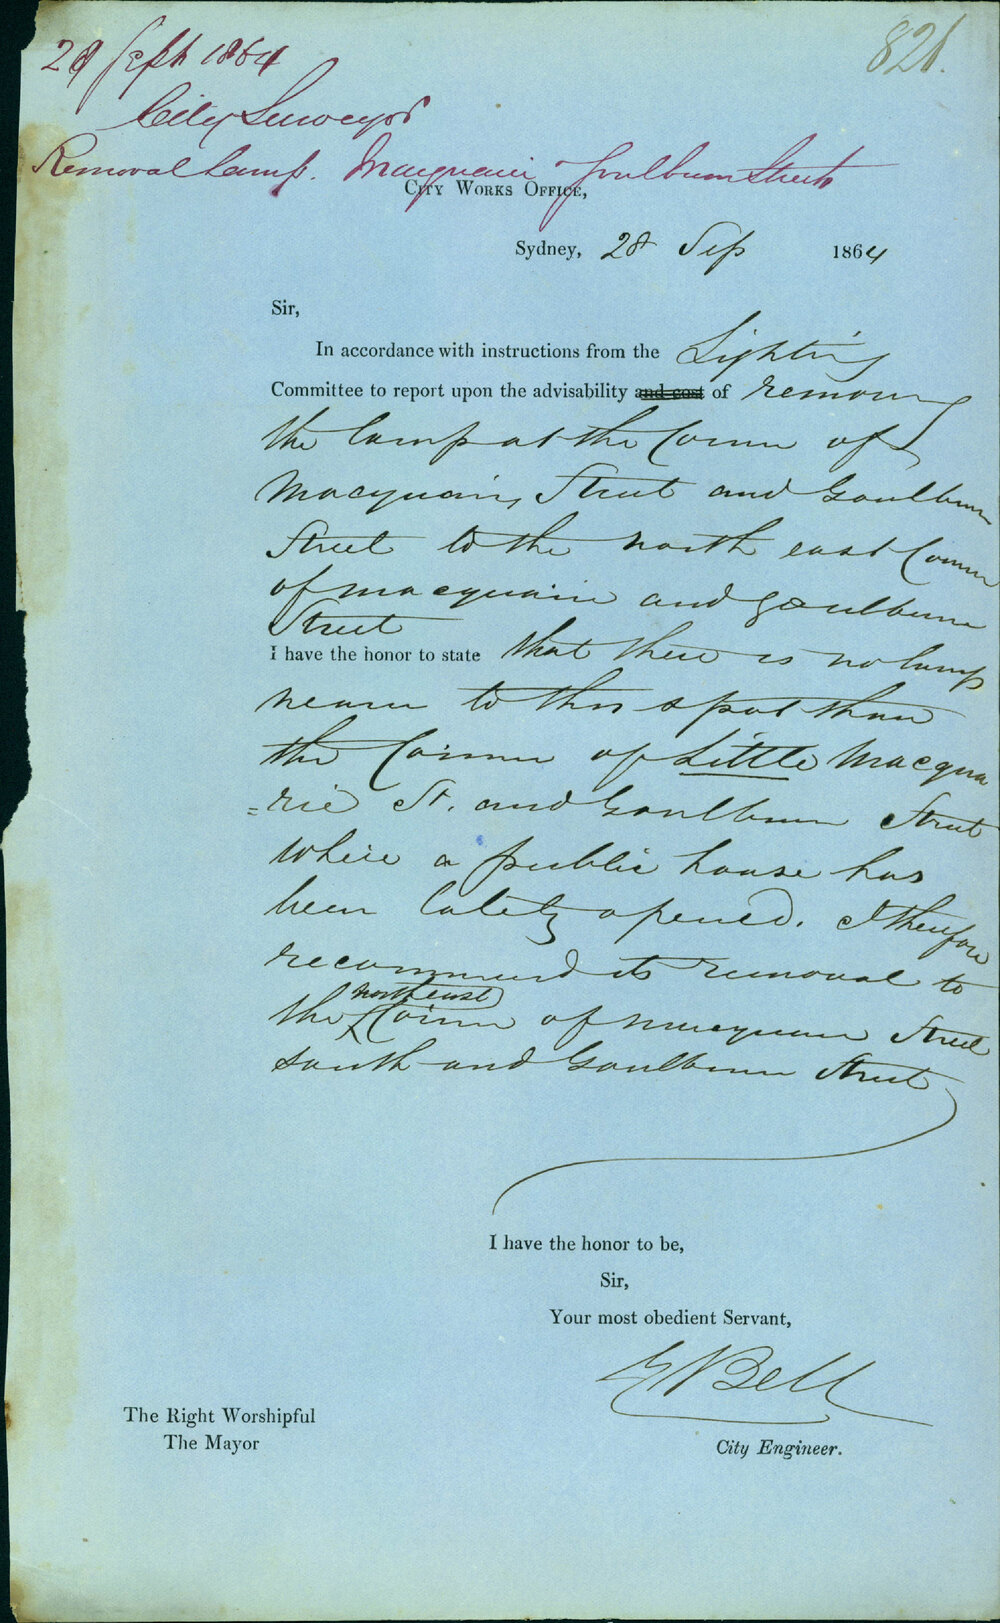 821.
28 Sept 1864
City Surveyor
Removal Lamp. Macquarie Goulburn Streets
City Works Office,
Sydney, 28 Sep 1864
Sir,
In accordance with instructions from the Lighting
Committee to report upon the advisability and cost of removing
the lamp at the Corner of
Macquarie Street and Goulburn
Street to the north east Corner
of macquarie and Goulburn
Street
I have the honor to state that there is no lamp
nearer to this spot than
the Corner of Little Macqua
=rie St. and Goulburn Street
where a public house has
been lately opened. I therefore
recommend its removal to
north east
the Corner of macquarie Street
south and Goulburn Street
I have the honor to be,
Sir,
Your most obedient Servant,
Bell
The Right Worshipful
The Mayor
City Engineer.